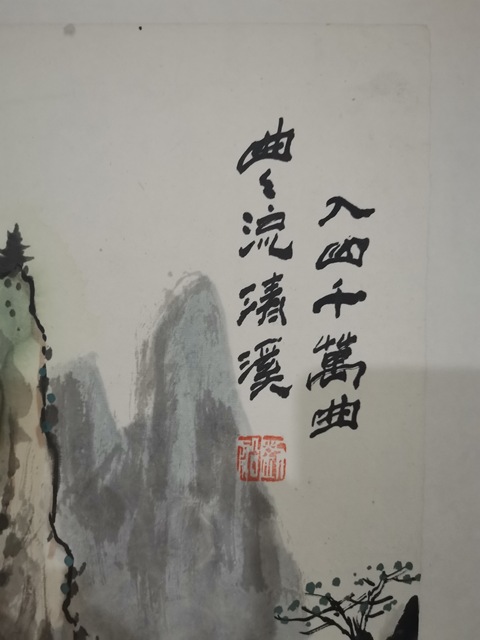 入山千萬曲
曲々流清溪